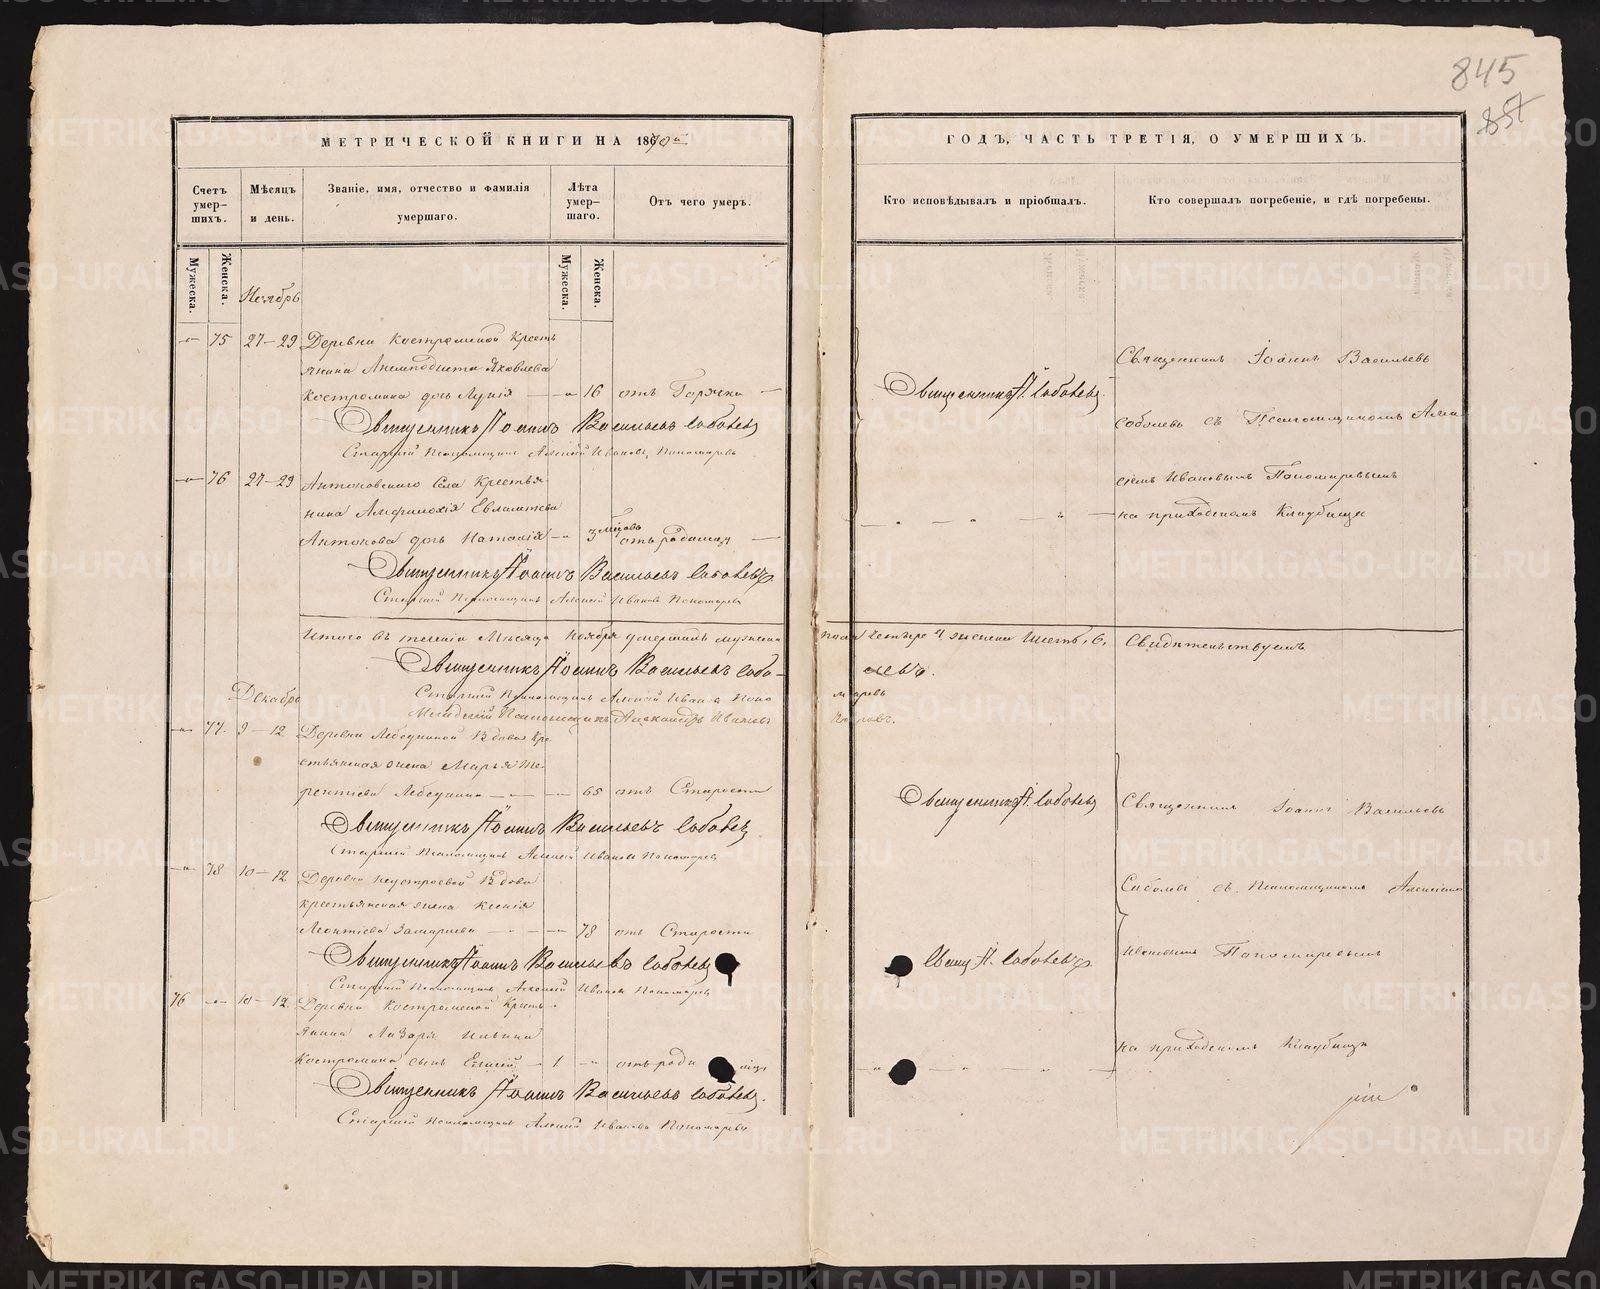 845
85
МЕТРИЧЕСКОЙ КНИГИ НА 1870й
ГОДЪ, ЧАСТЬ ТРЕТІЯ, О УМЕРШИХЪ.
Счетъ умер-шихъ.
Мѣсяцъ и день.
Званіе, имя, отчество и фамилія умершаго.
Лѣта умер-шаго.
Отъ чего умеръ.
Кто исповѣдывалъ и пріобщалъ.
Кто совершалъ погребеніе, и гдѣ погребены.
Мужеска.
Женска.
Мужеска.
Женска.
Ноябрь
75 27–29 Деревни Костроминой Кресть
янина Анемподиста Яковлева
Костромина дочь 16 отъ Горячки
Священникъ Іоаннъ Васильевъ Соболевъ
Старшій Псаломщикъ Алексѣй Ивановъ Пономаревъ
Священникъ І. Соболевъ
Священникъ Іоаннъ Васильевъ
Соболевъ съ Псаломщикомъ Алек
сѣемъ Ивановымъ Пономаревымъ
на приходскомъ Кладбище
76 27–29 Антоновскаго Села Крестья
нина Амфилохія Евлампіева
Антонова дочь Наталія 3 мѣсяцовъ отъ родимца
Священникъ Іоаннъ Васильевъ Соболевъ
Старшій Псаломщикъ Алексѣй Ивановъ Пономаревъ
Итого въ теченіи Мѣсяца Ноября умершихъ мужеска
пола четыре 4, женска шесть, 6. Свидѣтельствуемъ
Священникъ Іоаннъ Васильевъ Собо-
левъ.
Старшій Псаломщикъ Алексѣй Ивановъ Поно
маревъ
Младшій Псаломщикъ Александръ Ивановъ
Декабрь
77. 9–12 Деревни Лебедкиной Вдова Кре
стьянская жена Марья Те-
рентіева Лебедкина 65 отъ Старости
Священникъ Іоаннъ Васильевъ Соболевъ
Старшій Псаломщикъ Алексѣй Ивановъ Пономаревъ
Священникъ І. Соболевъ
Священникъ Іоаннъ Васильевъ
Соболевъ съ Псаломщикомъ Алексѣемъ
Ивановымъ Пономаревымъ
на приходскомъ Кладбище
78 10–12 Деревни Неустроевой Вдова
крестьянская жена Ксенія
Леонтіева 78 отъ Старости
Священникъ Іоаннъ Васильевъ Соболевъ
Старшій Псаломщикъ Алексѣй Ивановъ Пономаревъ
Свящ І. Соболевъ
76 10–12 Деревни Костроминой Кресть-
янина Лазаря Ильина
Костромина сынъ Елисей 1 отъ роди
Священникъ Іоаннъ Васильевъ Соболевъ.
Старшій Псаломщикъ Алексѣй Ивановъ Пономаревъ